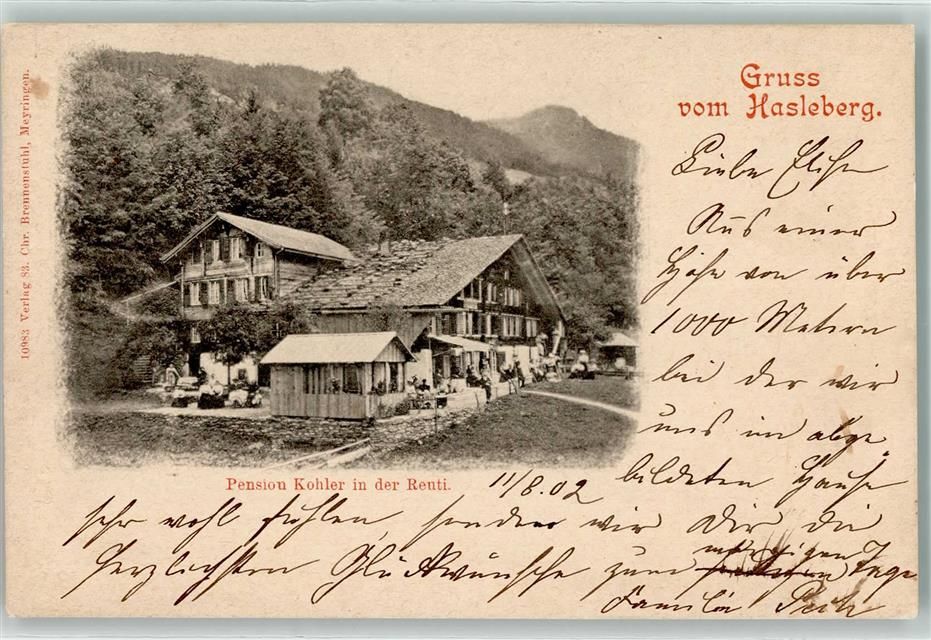 Gruss
vom Hasleberg.
10983 Verlag 83. Chr. Brennenstuhl, Meyringen.
Pension Kohler in der Reuti.
11/8.02
Liebe Elise
Aus einer
Höhe von über
1000 Metern
bei der wir
uns im abge
bildeten Hause
sehr wohl fühlen, senden wir Dir die
herzlichsten Glückwünsche zum morgigen Tage
Familie